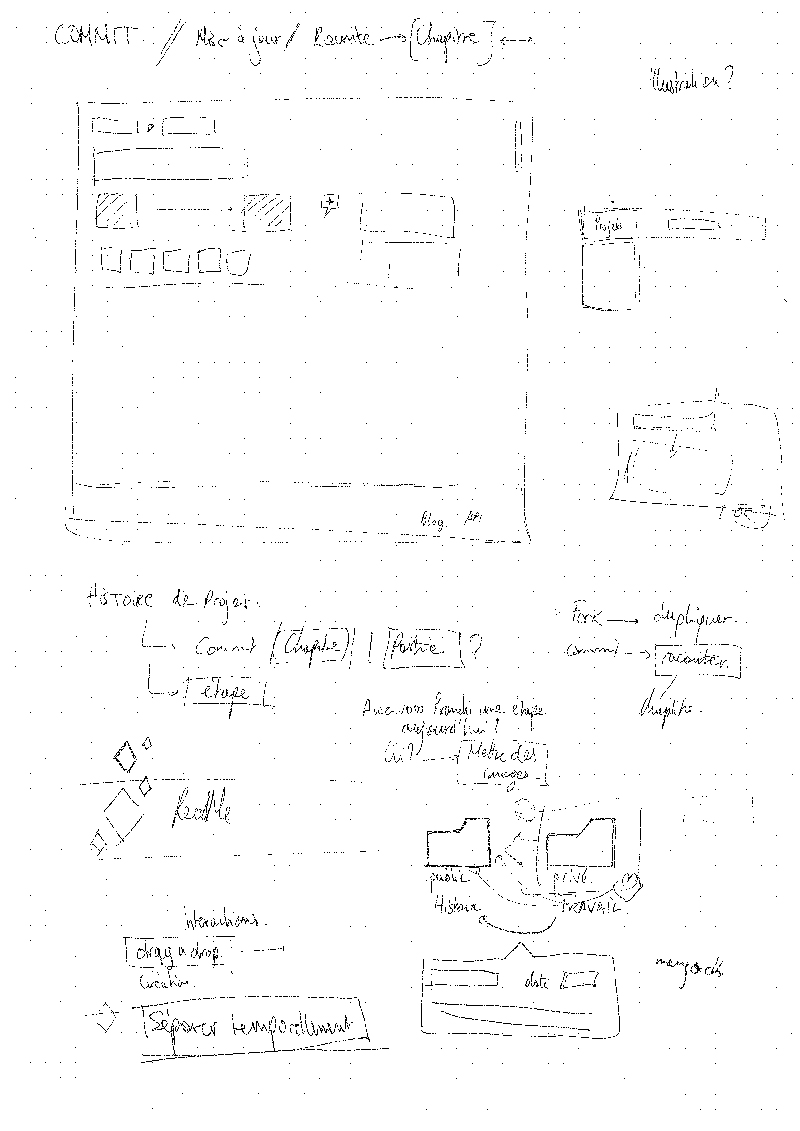 COMMIT // Mise à jour / Raconte → [Chapitre] ←→
Illustration ?
Projet
Blog. API
OK
HISTOIRE de Projet.
Commit [Chapitre] | Partie ?
étape
Fork → dupliquer
commit → raconter
chapitre.
Avez vous franchi une étape
aujourd'hui ?
Oui → Mettre des
images
ReadMe
public
privé
Histoire
TRAVAIL
interactions.
drag a drop.
Création.
date
Séparer temporellement